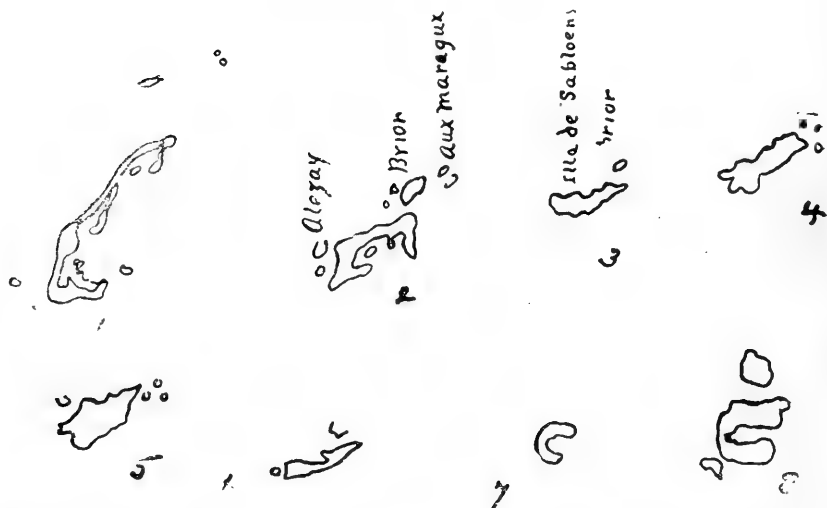 Alezay
Brior
Aux maraqux
Illa de Sabloens
Brior
2
3
4
5
7
8